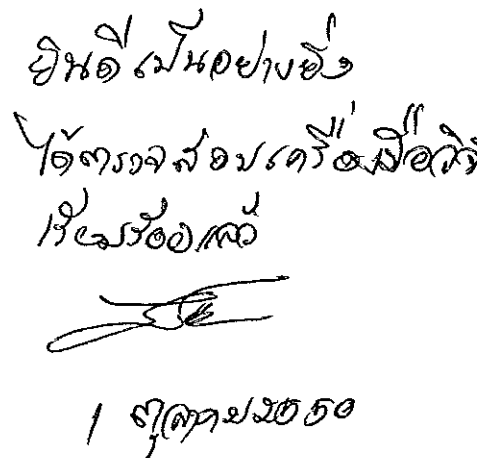 ยินดีเป็นอย่างยิ่ง
ได้ตรวจสอบเครื่องมือวิจั
เรียบร้อยแล้ว
1 ตุลาคม 2550